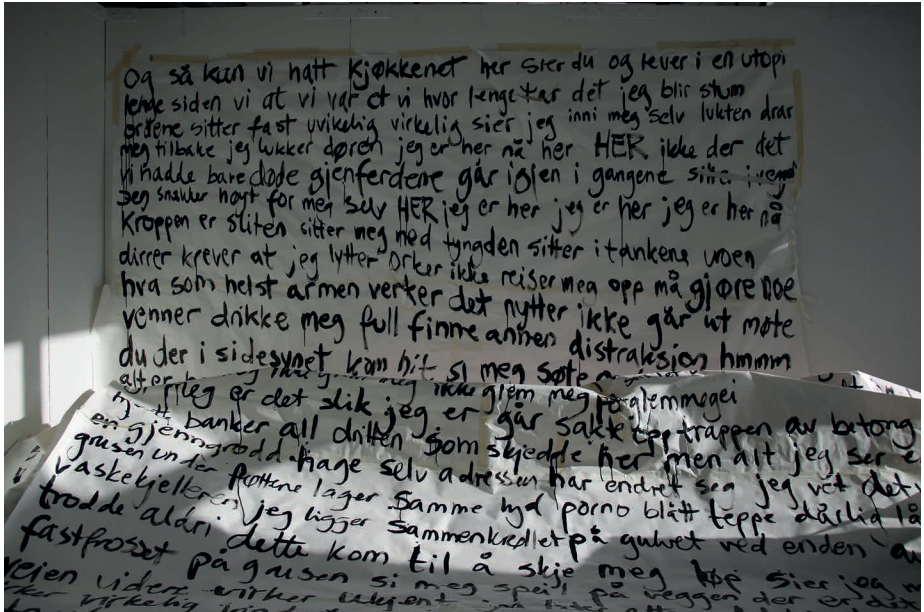 Og så kan vi hatt kjøkkenet her sier du og lever i en utopi
lenge siden vi at vi var et vi hvor lenge tar det jeg blir stum
ordene sitter fast uvikelig virkelig sier jeg inni meg selv lukten drar
meg tilbake jeg lukker døren jeg er her nå her HER ikke der det
vi hadde bare døde gjenferdene går igjen i gangene sine
Jeg snakker høyt for meg selv HER jeg er her jeg er her jeg er her nå
Kroppen er sliten sitter meg ned tyngden sitter i tankene uroen
dirrer krever at jeg lytter orker ikke reiser meg opp må gjøre noe
hva som helst armen verker det nytter ikke går ut møte
venner drikke meg full finne annen distraksjon hmmm
du der i sidesynet kom hit si meg søte
alt er ikke glem meg forglemmegei
meg er det slik jeg er går sakte opp trappen av betong
banker all dritten som skjedde her men alt jeg ser e
en gjenngrodd hage selv adressen har endret seg jeg vet det
grusen under føttene lager samme lyd porno blått teppe dårlig lå
vaskekjelleren jeg ligger sammenkrøllet på gulvet ved enden av
trodde aldri dette kom til å skje meg sier jeg
fastfrosset på grusen si meg speil på veggen der er det
veien videre virker ukjent
virkelig